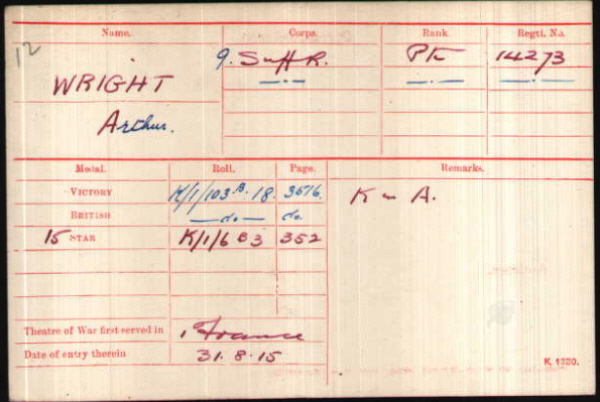 Name. Corps. Rank. Regtl. No.
12
WRIGHT 9. Suff R. Pte 14273
Arthur. —.— —.— —.—
Medal. Roll. Page. Remarks.
VICTORY K/1/103 B. 18. 3576. K in A.
BRITISH —do— do
15 STAR K/1/6 B3 352
Theatre of War first served in 1 France
Date of entry therein 31.8.15
K. 1380.